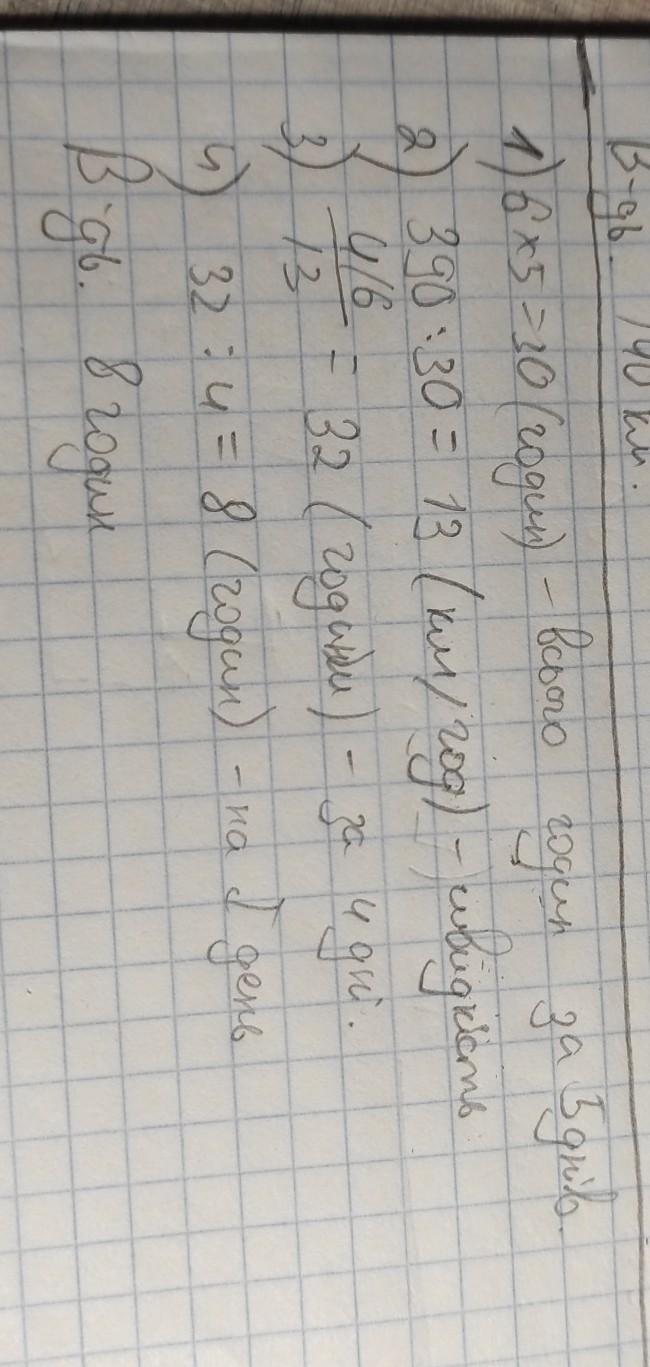 В-дь. 140 км.
1) 6 × 5 = 30 (годин) - всього годин за 5 днів.
2) 390 : 30 = 13 (км/год) - швидкість
3) 416/13 = 32 (години) - за 4 дні.
4) 32 : 4 = 8 (годин) - на 1 день
В-дь. 8 годин